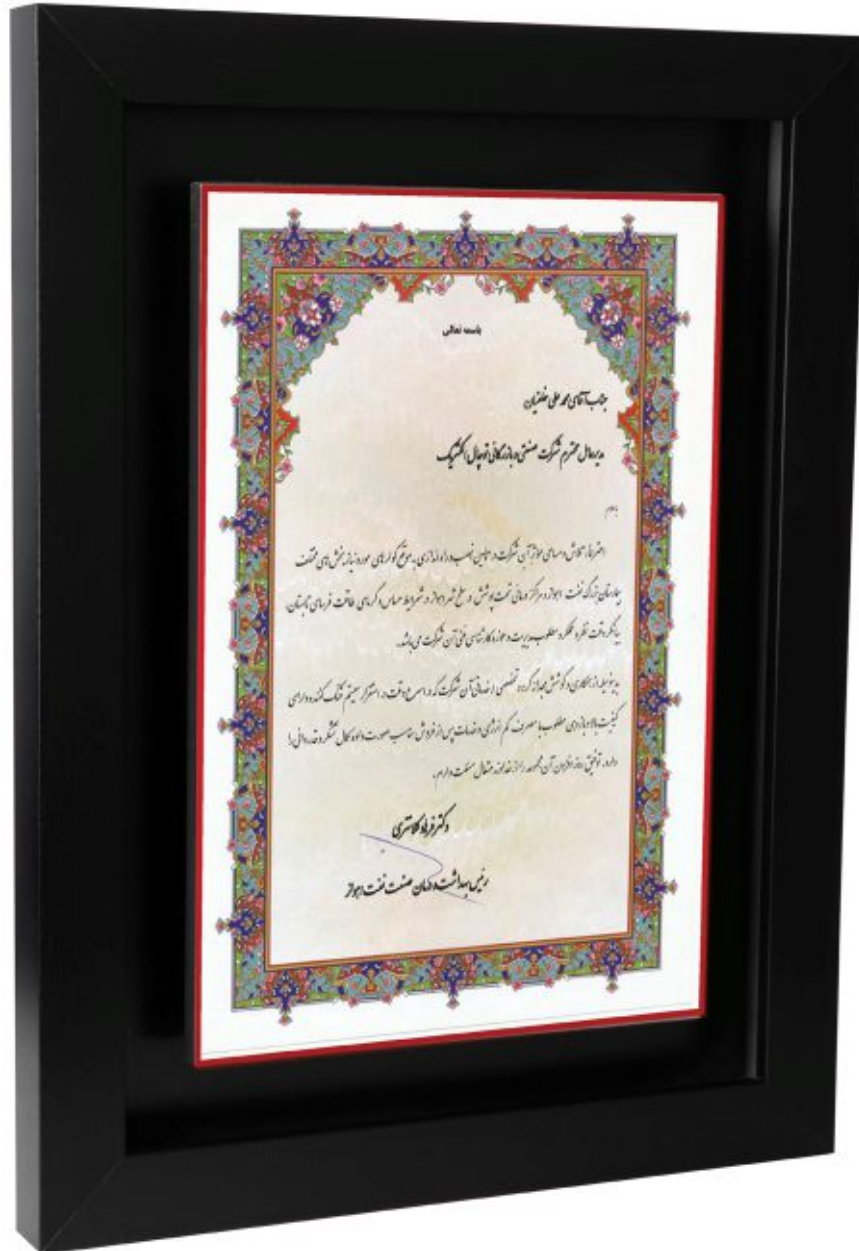 باسمه تعالی
جناب آقای محمد علی خلتیان
مدیرعامل محترم شرکت صنعتی و بازرگانی توچال الکتریک
با سلام
احتراما، تلاش و مساعی موثر آن شرکت در تامین نصب و راه اندازی به موقع کولرهای مورد نیاز بخش های مختلف
بیمارستان بزرگ نفت اهواز و مراکز درمانی تحت پوشش در سطح شهر اهواز در شرایط حساس و گرمای طاقت فرسای تابستان،
بیانگر دقت نظر و عملکرد مطلوب مدیریت و حوزه کارشناسی فنی آن شرکت می باشد.
بدینوسیله از همکاری و کوشش مجدانه گروه تخصصی خدماتی آن شرکت که در اسرع وقت در استقرار سیستم خنک کننده دارای
کیفیت بالا و بازدهی مطلوب با مصرف کم انرژی و خدمات پس از فروش مناسب صورت داده کمال تشکر و قدردانی را
دارد. توفیق روز افزون آن مجموعه را از خداوند متعال مسئلت دارم.
دکتر فرهاد کلانتری
رئیس بهداشت و درمان صنعت نفت اهواز